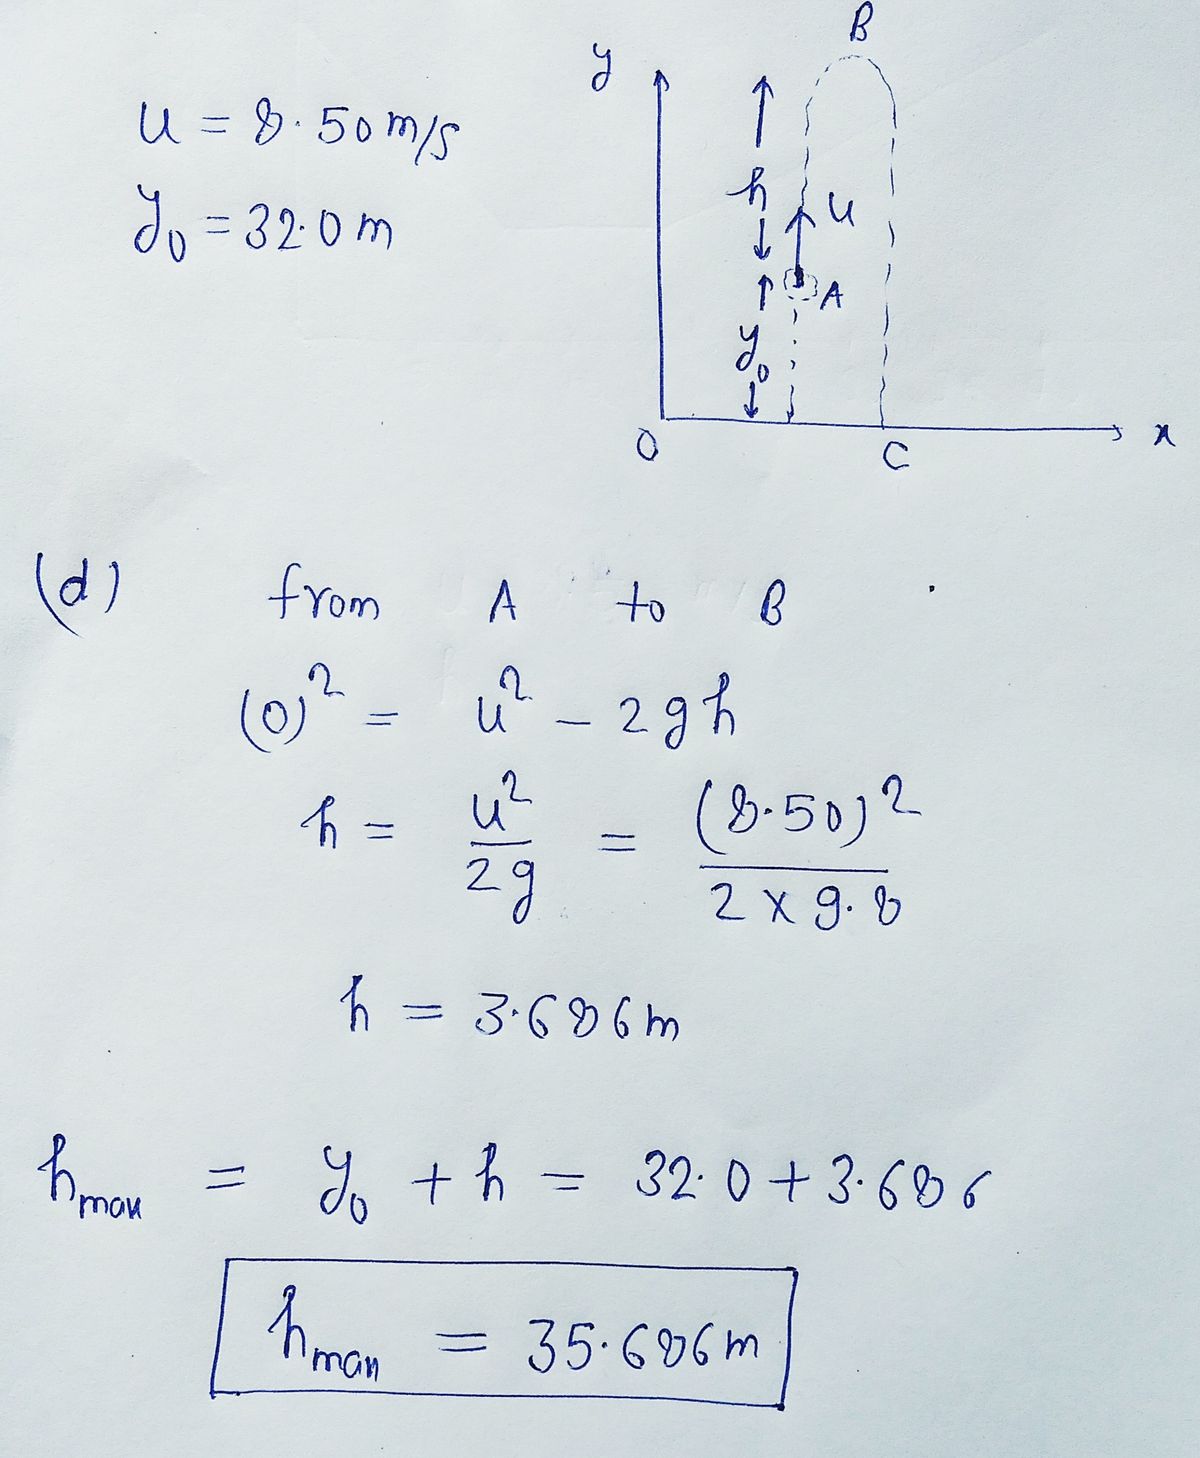 B
y
u = 8.50 m/s
h
u
y₀ = 32.0 m
A
y₀
O
C
x
(d) from A to B
(0)² = u² - 2gh
h = u²/2g = (8.50)²/2 x 9.8
h = 3.686 m
hmax = y₀ + h = 32.0 + 3.686
hmax = 35.686 m